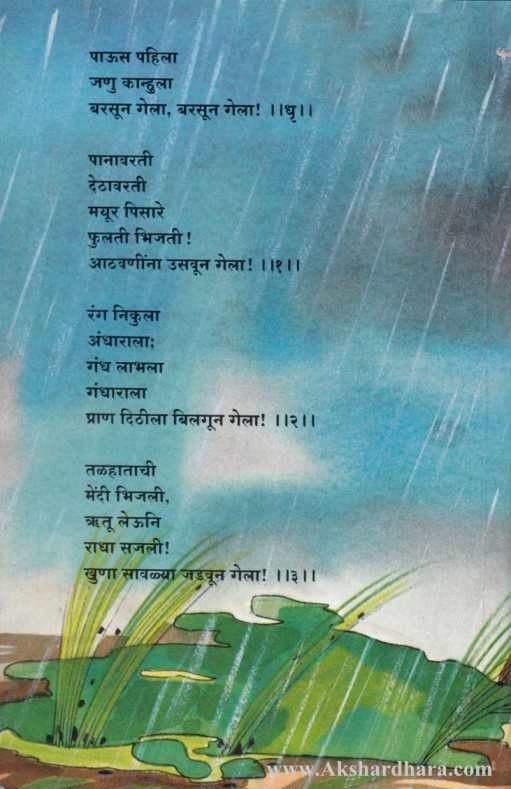 पाऊस पहिला
जणु कान्हुला
बरसून गेला, बरसून गेला! ।।धृ।।
पानावरती
देठावरती
मयूर पिसारे
फुलती भिजती!
आठवणींना उसवून गेला! ।।१।।
रंग निकुला
अंधाराला;
गंध लाभला
गंधाराला
प्राण दिठीला बिलगून गेला! ।।२।।
तळहाताची
मेंदी भिजली,
ऋतू लेऊनि
राधा सजली!
खुणा सावळ्या जडवून गेला! ।।३।।
www.Akshardhara.com